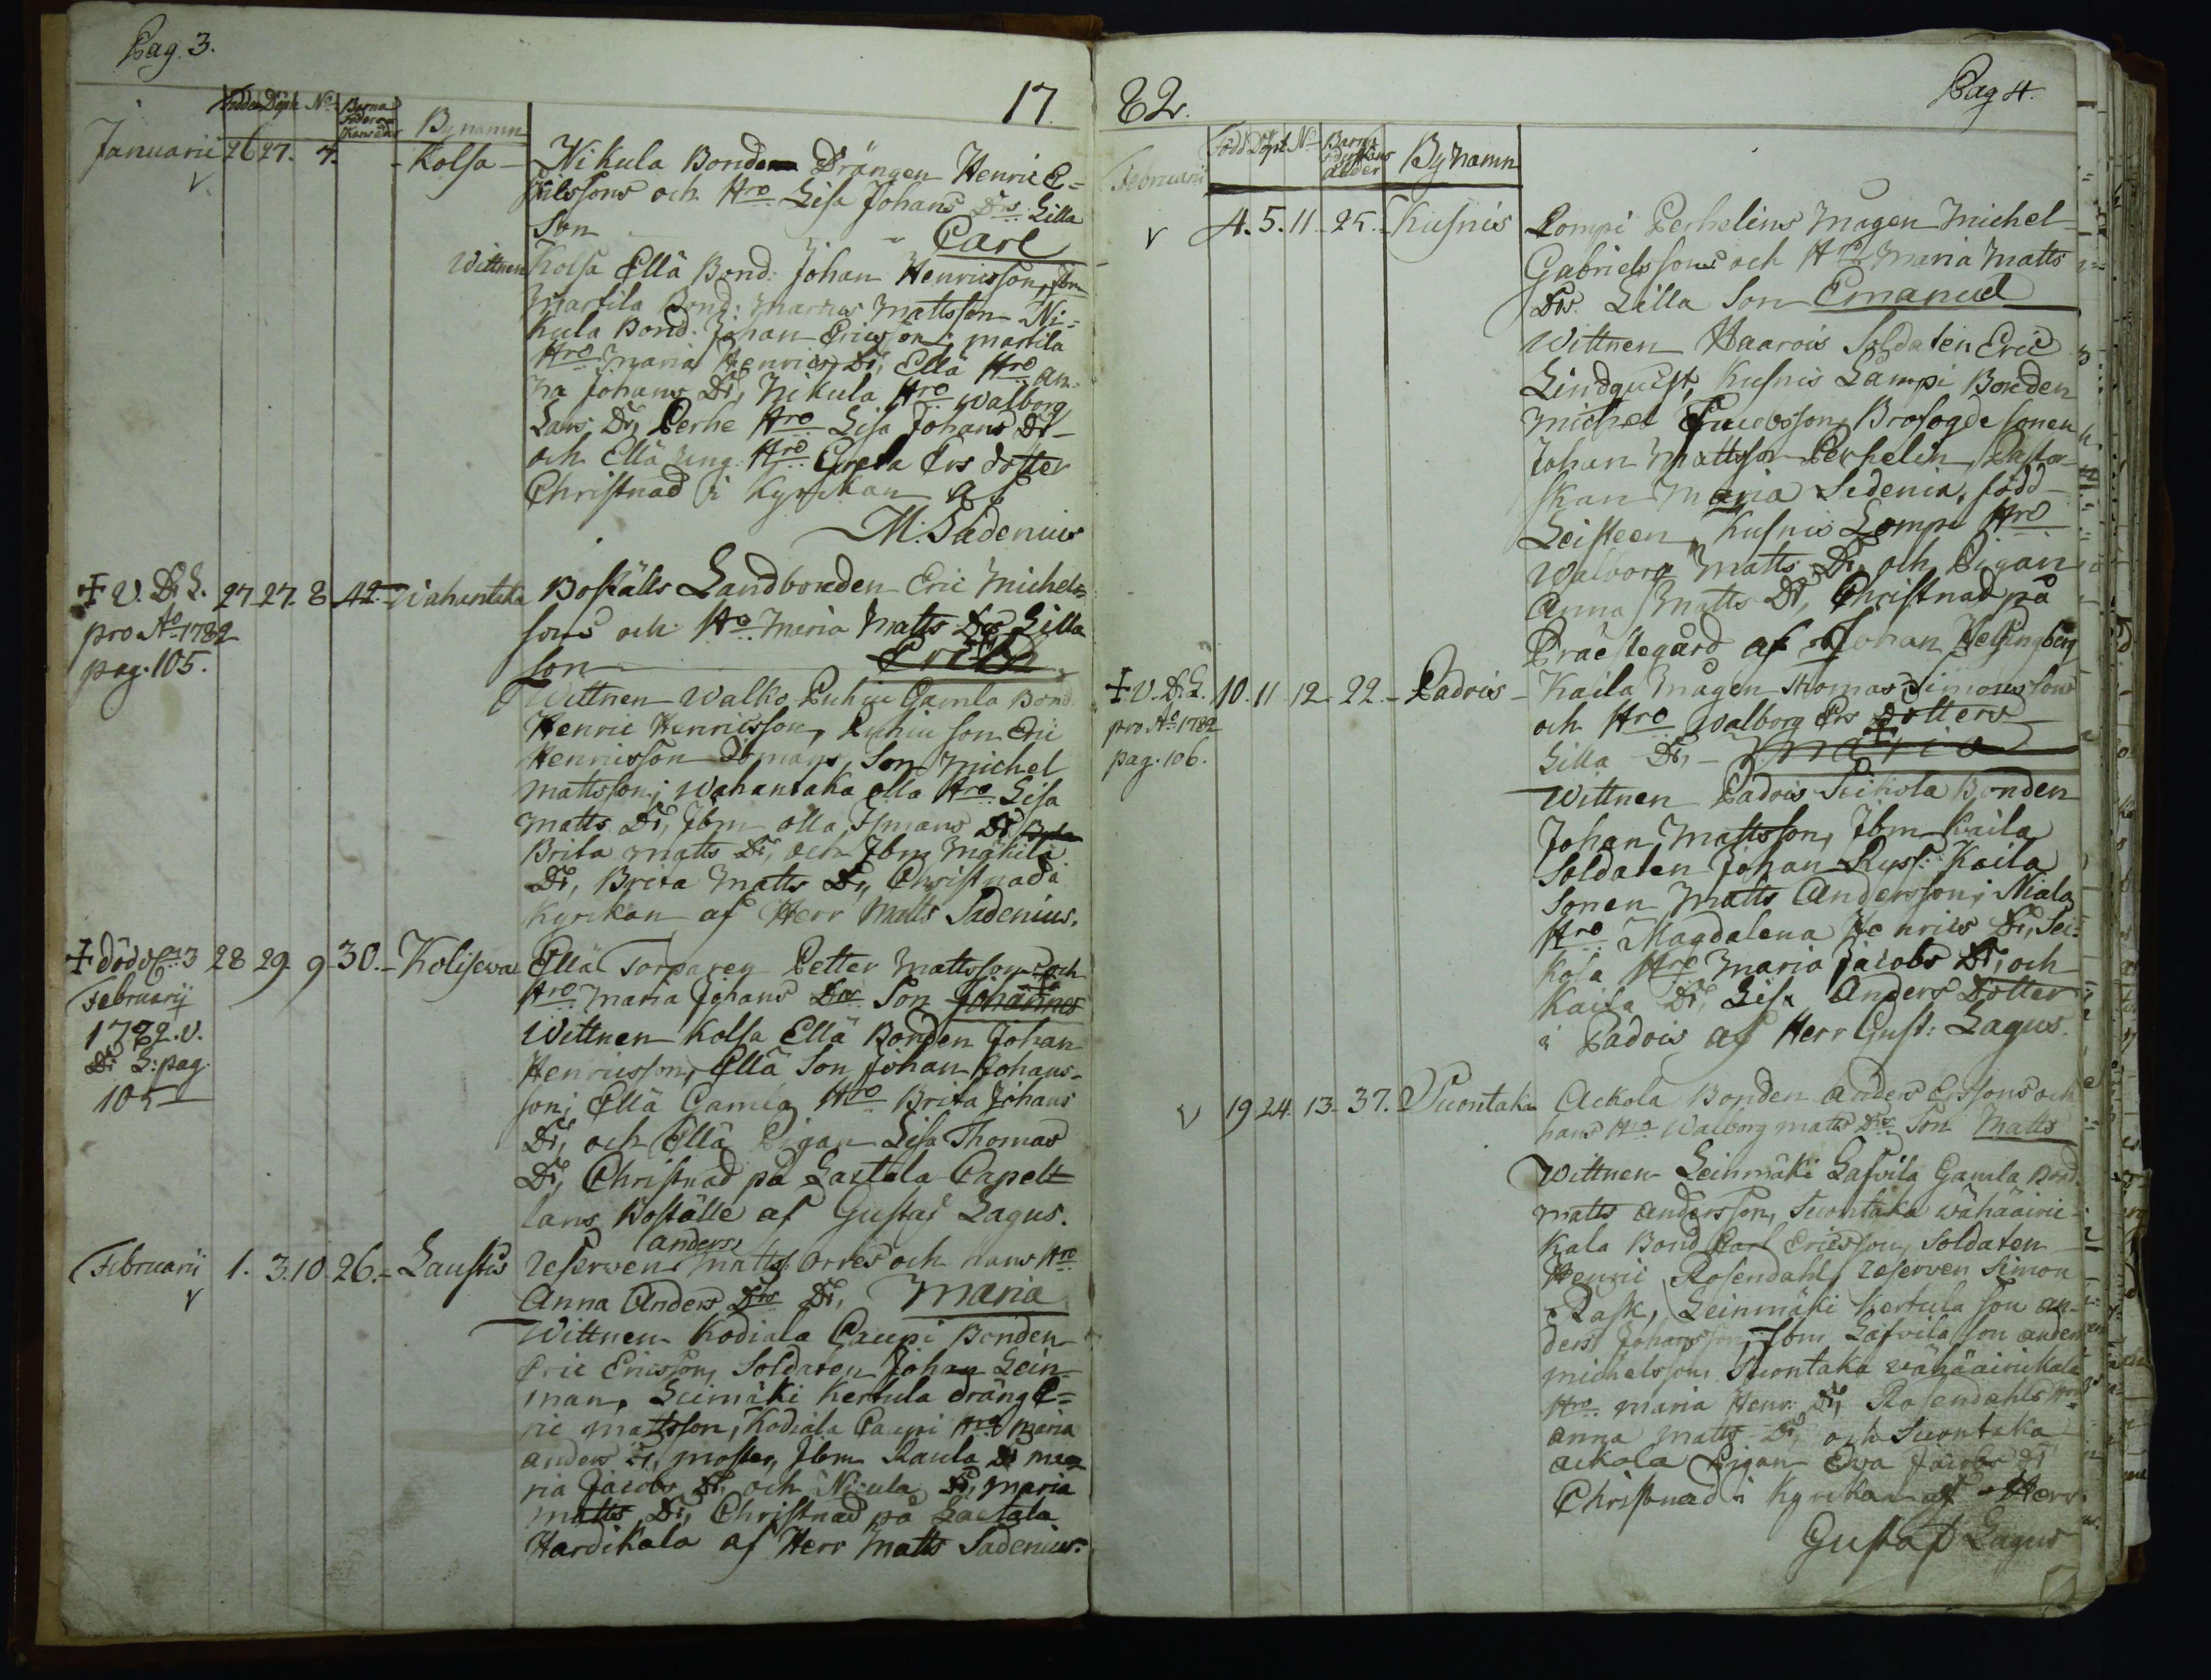 Pag. 3.
17.
Födde Döpte No. Barna Föderskans ålder Bynamn
Januarii 26 27. 7. - Kolsa - Nikula Bonde Drängen Henric E=
rikssons och Hro Lisa Johans Drs Lilla
Son Carl
Wittnen Kolsa Ellä Bond: Johan Henricsson, Ibm
Martila Bond: Marcus Mattsson Ni=
kula Bond. Johan Ericsson; martila
Hro Maria Henrics Dr, Ellä Hro An=
na Johans Dr, Nikula Hro Walborg
Lars Dr, Perhe Hro Lisa Johans Dr
och Ellä ung Hro Greta Ers dotter
Christnad i Kyrckan af
M. Sadenius
+ V. D. L. 27. 27. 8 42. Wahantaka Boställs Landbonden Eric Michels=
pro Ao 1782 sons och Hro Maria Matts Drs Lilla
pag. 105. son Erik
Wittnen Walko Puhiu Gamla Bond.
Henric Henricsson, Puhiu son Eric
Henricsson Tomars, Son Michel
Mattsson; Wahantaka Olla Hro Lisa
Matts Dr, Ibm Olla Ismans Dr
Brita Matts Dr, och Ibm Mäkilä
Dr, Brita Matts Dr, Christnad i
Kyrikan af Herr Matts Sadenius.
+ död 3 28 29. 9 30. - Kolisewa Ellä Torparen Petter Mattssons och
Februarij Hro Maria Johans Drs Son Johannes
1782. V. Wittnen Kolsa Ellä Bonden Johan
D: L: pag. Henricsson, Ellä Son Johan Johans-
105 son; Ellä Gamla Hro Brita Johans
Dr, och Ellä Pigan Lisa Thomas
Dr, Christnad på Lastala Capell
lans Boställe af Gustaf Lagus.
Februarii 1. 3. 10. 26. - Laustis Reserven Matts anders Orres och hans Hro
Anna Anders Drs Dr, Maria
Wittnen Kodiala Caupi Bonden
Eric Ericsson, Soldaten Johan Lein-
man, Leimäki Kertula dräng E=
ric Mattsson, Kodiala Caupi Hro Maria
anders Dr, moster, Ibm Raula Dr Ma
ria Jacobs Dr, och Nicula Dr, Maria
Matts Dr, Christnad på Lastala
Hardikala af Herr Matts Sadenius.
82.
Pag 4.
Född Döpt No Barna Föderskans ålder Bynamn
Februarii
4. 5. 11 25. Kusnis Lompi Perhelins Mågen Michel
Gabrielssons och Hro Maria Matts
Drs. Lilla Son Emanuel
Wittnen Haarois Soldaten Eric
Lindquist, Kusnis Lampi Bonden
Michel Jacobsson, Brofogde sonen
Johan Mattsson Perhelin, Pastor-
skan Maria Sedenia, född
Leisteen, Kusnis Lompi Hro
Walborg Matts Dr, och Pigan
Anna Matts Dr, Christnad på
Præstegård af Johan Helsingberg
+ V. D. L. 10. 11 12 22. - Padvois - Kaila Mågen Thomas Simonssons
pro Ao 1782 och Hro Walborg Ers Dotters
pag. 106. Lilla Dr, - Maria
Wittnen Padvois Seikola Bonden
Johan Mattsson, Ibm Kaila
Soldaten Johan Ryss: Kaila
Sonen Matts Andersson; Niala
Hro Magdalena Henrics Dr, Sei=
kola Hro Maria Jacobs Dr, och
Kaila Dr, Lisa Anders Dotter
i Padvois af Herr Gust: Lagus.
V 19 24. 13 - 37. Suontaka Ackola Bonden Anders Erssons och
hans Hro Walborg Matts Drs Son Matts
Wittnen Leinmäki Lasvila Gamla Bond.
Matts Andersson, Suontaka Wähäairic
kala Bond Carl Ericsson, Soldaten
Henric Rosendahl, Reserven Simon
Rask, Leinmäki Kertula son An-
ders Johansson, Ibm Lasvila son anders
michelsson, Suontaka Wähäairickala
Hro Maria Henr: Dr, Rosendahls Hro
Anna Matts Dr, och Suontaka
Ackola Pigan Ewa Jacobs Dr
Christnad i Kyrckan af Herr
Gustaf Lagus